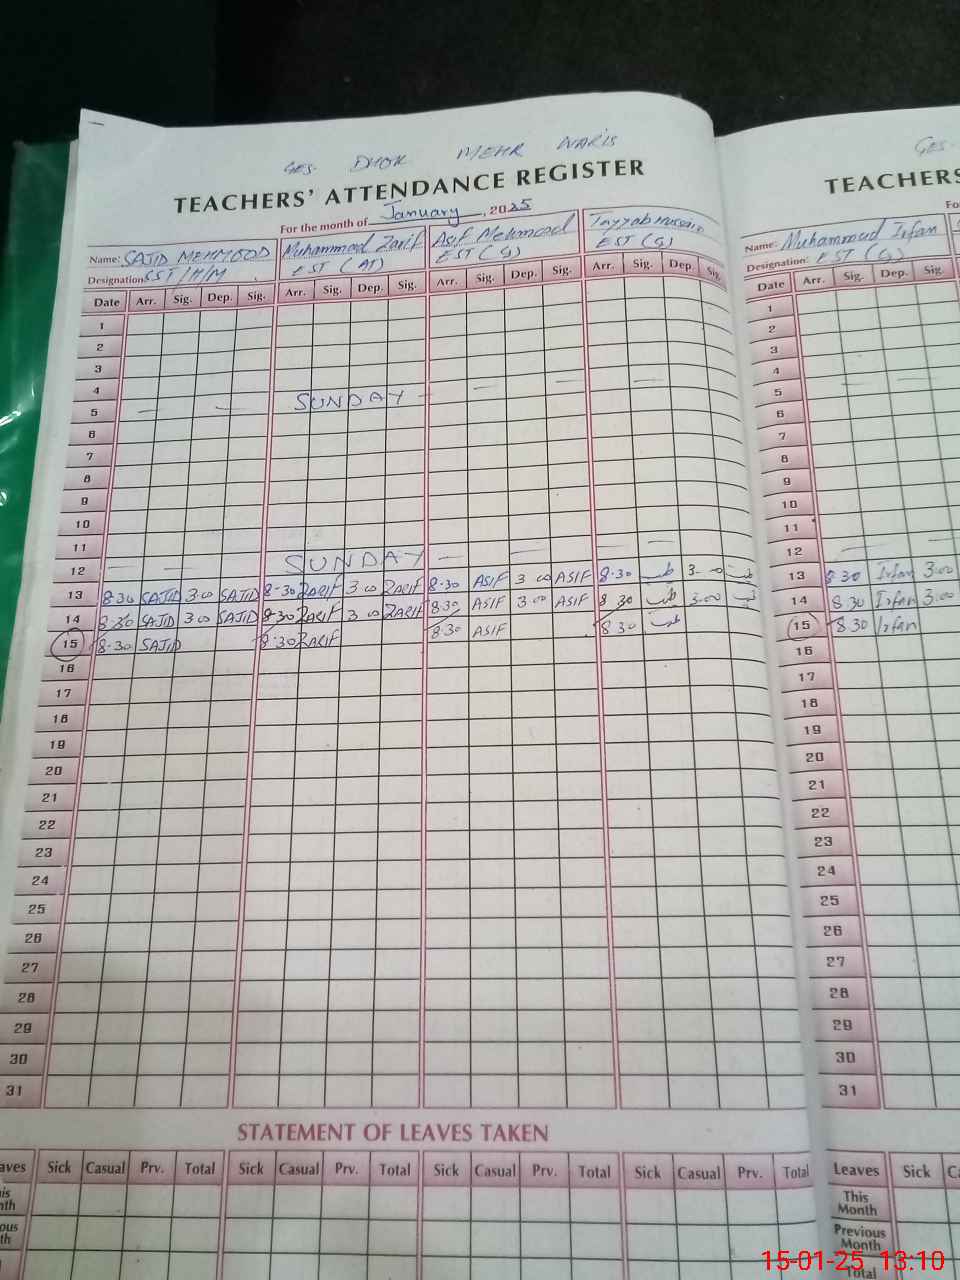 GES. DHOK MEHR WARIS
TEACHERS' ATTENDANCE REGISTER
For the month of January, 2025
Name: SAJID MEHMOOD Muhammad Zarif Asif Mehmood Tayyab Hussain
Designation: SST/H/M EST (AT) EST (G) EST (G)
Date Arr. Sig. Dep. Sig. Arr. Sig. Dep. Sig. Arr. Sig. Dep. Sig. Arr. Sig. Dep. Sig.
1
2
3
4
5 — — SUNDAY — — — —
6
7
8
9
10
11
12 — — SUNDAY — — — —
13 8-30 SAJID 3.00 SAJID 8-30 ZARIF 3.00 ZARIF 8-30 ASIF 3.00 ASIF 8.30 3.00
14 8-30 SAJID 3.00 SAJID 8-30 ZARIF 3.00 ZARIF 8.30 ASIF 3.00 ASIF 8.30 3.00
15 8-30 SAJID 8-30 ZARIF 8.30 ASIF 8.30
16
17
18
19
20
21
22
23
24
25
26
27
28
29
30
31
STATEMENT OF LEAVES TAKEN
aves Sick Casual Prv. Total Sick Casual Prv. Total Sick Casual Prv. Total Sick Casual Prv. Total
is
nth
ous
th
GES.
TEACHERS
Fo
Name: Muhammad Irfan
Designation: EST (G)
Date Arr. Sig. Dep. Sig.
1
2
3
4
5 — —
6
7
8
9
10
11
12
13 8.30 Irfan 3.00
14 8.30 Irfan 3.00
15 8.30 Irfan
16
17
18
19
20
21
22
23
24
25
26
27
28
29
30
31
Leaves Sick Ca
This
Month
Previous
Month
Total
15-01-25 13:10